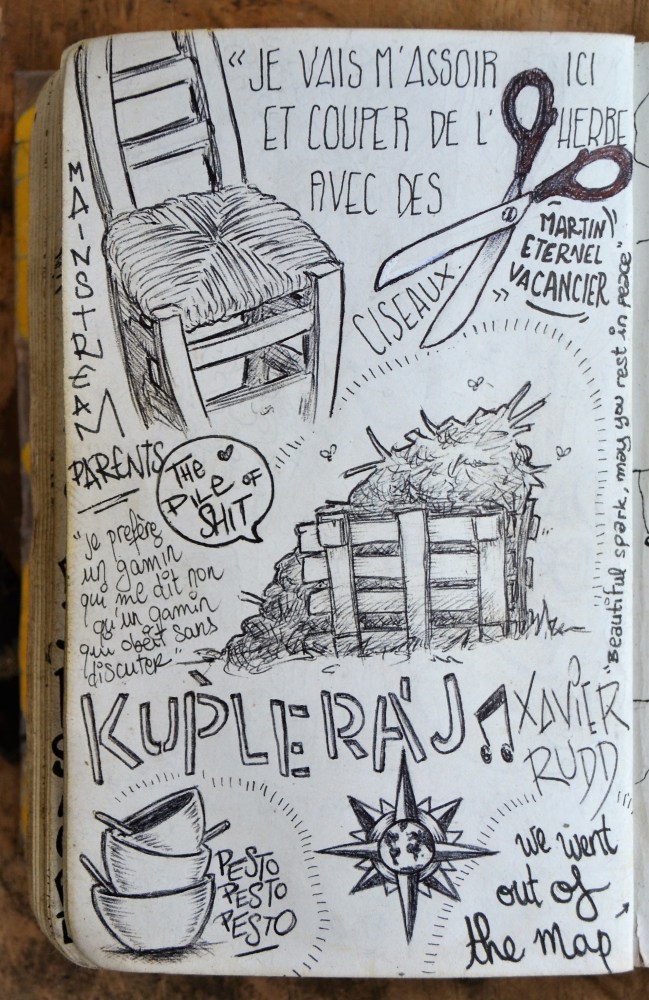 "JE VAIS M'ASSOIR ICI
ET COUPER DE L'HERBE
AVEC DES
CISEAUX. "
MARTIN
ETERNEL
VACANCIER
MAINSTREAM
PARENTS
THE
PILE OF
SHIT
"je préfère
un gamin
qui me dit non
qu'un gamin
qui obéit sans
discuter"
"Beautiful spark, may you rest in peace"
KUPLERAJ
XAVIER
RUDD
PESTO
PESTO
PESTO
we went
out of
the map